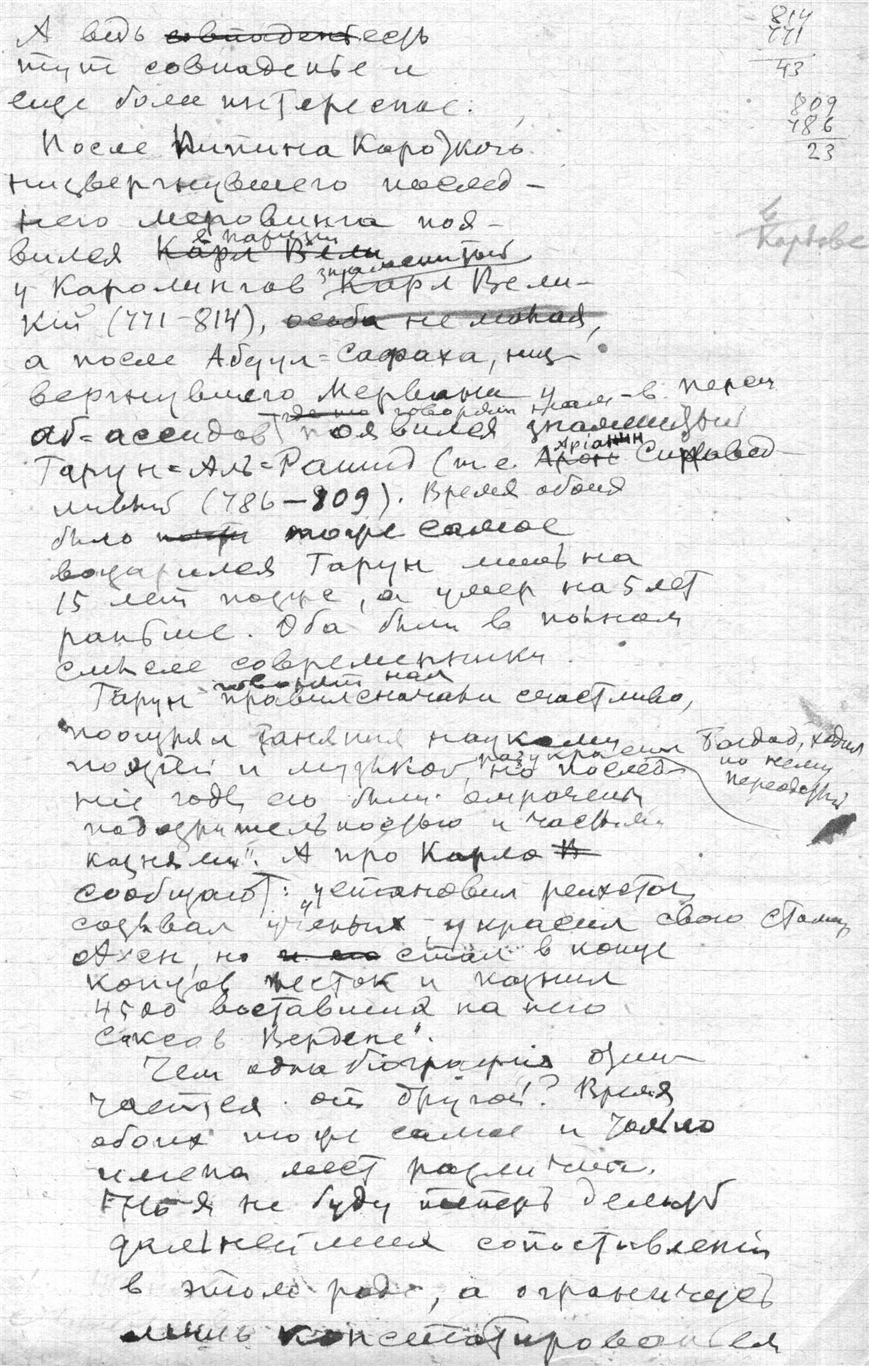 814
771
43
809
786
23
А ведь совпаденьесть
тут совпаденье и
еще более интересное.
После Пипина Короткого
низвергнувшего послед-
него меровинга поя-
вился Карл Вели
в париже
у Каролингов знаменитый Карл Вели-
кий (771-814), особа не малая,
а после Абуул=Сафаха, низ-
вергнувшего Мервана у
аб=ассидов говорят нам появился знаменитый
Гарун=Аль=Рашид (т.е. Арон Аріанин Справед-
ливый (786-809). Время обоих
было почти тоже самое
воцарился Гарун лишь на
15 лет позже, а умер на 5 лет
раньше. Оба были в полном
смысле современники.
Гарун говорят нам правил сначала счастливо,
поощрял занятия науками
поэзией и музыкой, разукрасил Багдад, ходил
по нему
переодетый
но послед-
ніе годы его были омрачены
подозрительностью и частыми
казнями". А про Карла В
сообщают: "установил рейхстаг,
созывал ученых, украсил свою столицу
Ахен, но и его стал в конце
концов жесток и казнил
4500 воставших на него
саксов Вердене".
Чем одна біографія отли-
чается от другой? Время
обоих тоже самое и только
имена мест различны.
Но я не буду теперь делать
дальнейшия сопоставленія
в этом роде, а ограничусь
лишь констатированьем